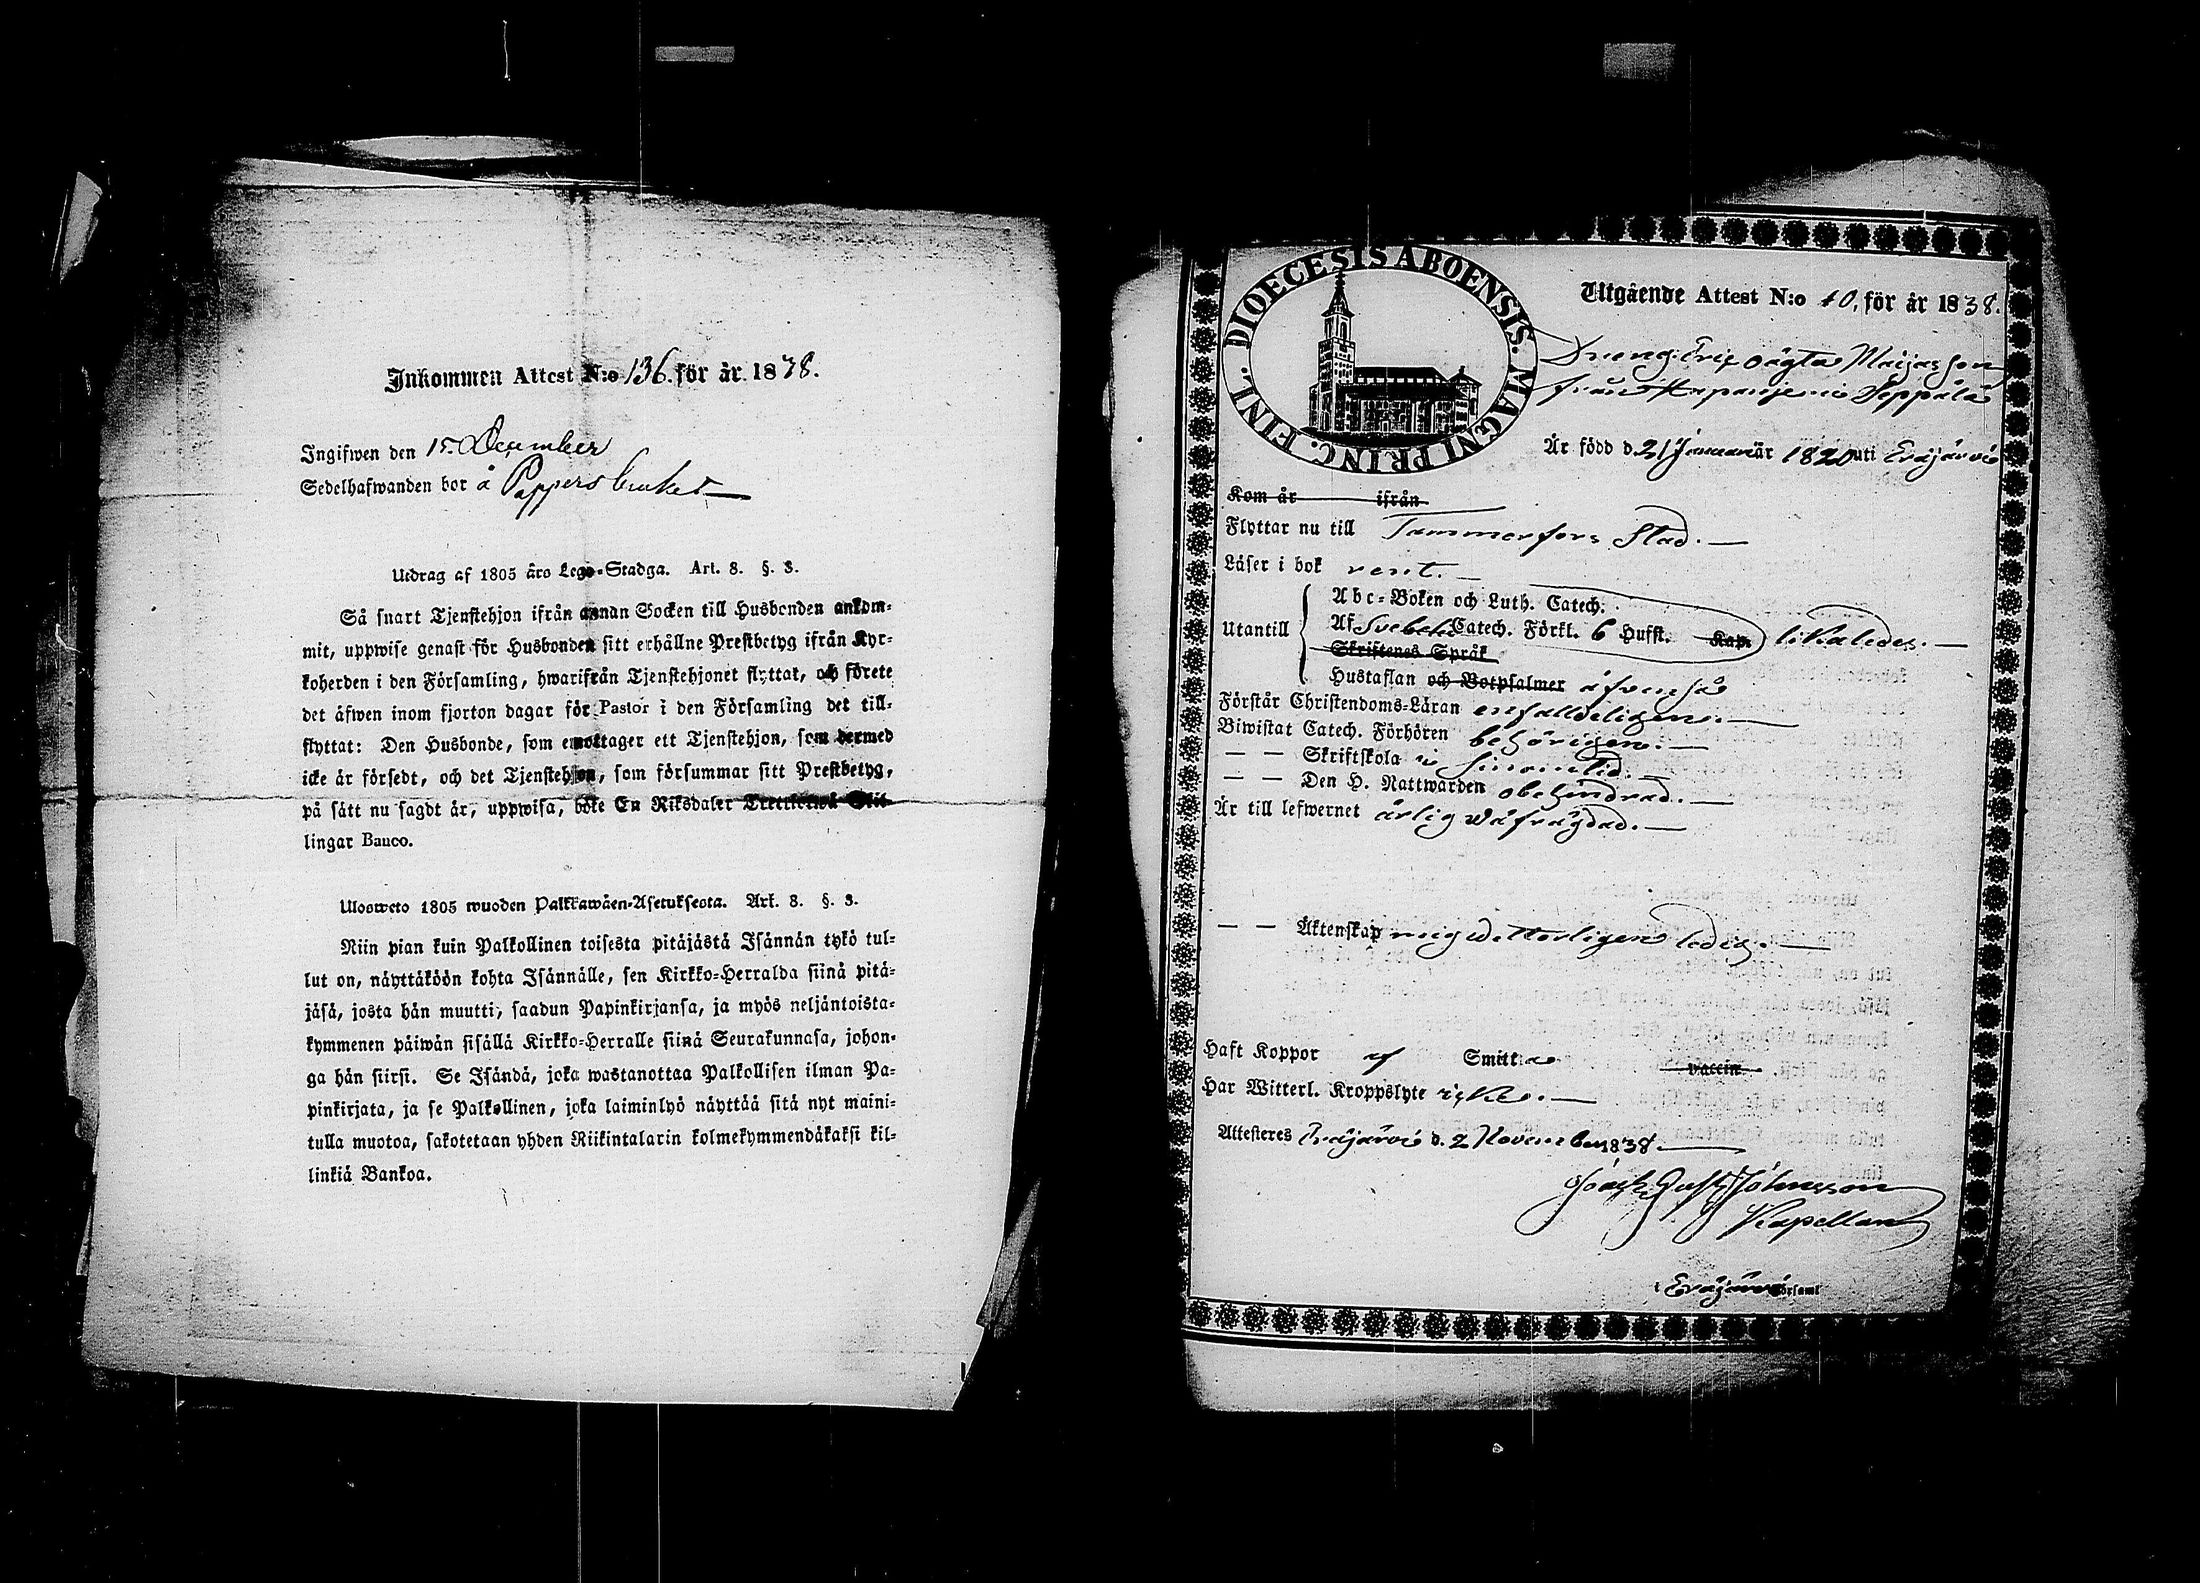 Inkommen Attest N:o 136. för år 1838.
Ingifwen den 15. December
Sedelhafwanden bor å Pappersbruket
Utdrag af 1805 års Lego-Stadga. Art. 8. §. 3.
Så snart Tjenstehjon ifrån annan Socken till Husbonden ankom-
mit, uppwise genast för Husbonden sitt erhållne Prestbetyg ifrån Kyr-
koherden i den Församling, hwarifrån Tjenstehjonet flyttat, och förete
det äfwen inom fjorton dagar för Pastor i den Församling det till-
flyttat: Den Husbonde, som emottager ett Tjenstehjon, som dermed
icke är försedt, och det Tjenstehjon, som försummar sitt Prestbetyg,
på sätt nu sagdt är, uppwisa, böte En Riksdaler Trettiotwå Skil-
lingar Banco.
Ulosweto 1805 wuoden Palkkawäen-Asetuksesta. Art. 8. §. 3.
Niin pian kuin Palkollinen toisesta pitäjästä Isännän tykö tul-
lut on, näyttäköön kohta Isännälle, sen Kirkko-Herralda siinä pitä-
jäsä, josta hän muutti, saadun Papinkirjansa, ja myös neljäntoista-
kymmenen päiwän sisällä Kirkko-Herralle siinä Seurakunnasa, johon-
ga hän siirsi. Se Isändä, joka wastanottaa Palkollisen ilman Pa-
pinkirjata, ja se Palkollinen, joka laiminlyö näyttää sitä nyt maini-
tulla muotoa, sakotetaan yhden Riikintalarin kolmekymmendäkaksi kil-
linkiä Bankoa.
DIOECESIS ABOENSIS. MAGNI PRINC. FINL.
Utgående Attest N:o 40, för år 1838.
Dreng. Eric oägta Maijasson
från Haparijervi Seppälä
Är född d. 21 Januari är 1820 uti Eräjärvi
Kom år ifrån
Flyttar nu till Tammerfors Stad.
Läser i bok rent.
Utantill
Abc-Boken och Luth. Catech.
Af Svebelii Catech. Förkl. 6 Hufst. Kap. likaledes.
Skriftenes Språk
Hustaflan och Botpsalmer äfvenså
Förstår Christendoms-Läran enfalldeligen.
Biwistat Catech. Förhören behörigen.
— — Skriftskola i sinom tid.
— — Den H. Nattwarden obehindrad.
Är till lefwernet ärlig oåfrägdad.
— — Äktenskap mig vetterligen ledig.
Haft Koppor af Smitta vaccin
Har Witterl. Kroppslyte icke.
Attesteres Eräjärvi d. 2 November 1838.
Gust. Johnsson
Kapellan
i Eräjärvi Församl